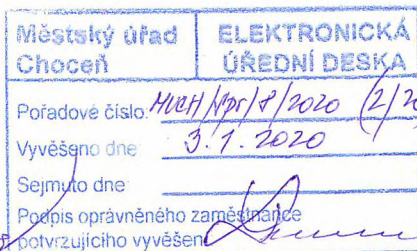 Městský úřad
Choceň
ELEKTRONICKÁ
ÚŘEDNÍ DESKA
Pořadové číslo: 2020
Vyvěšeno dne: 3.1.2020
Sejmuto dne:
Podpis oprávněného zaměstnance
potvrzujícího vyvěšení